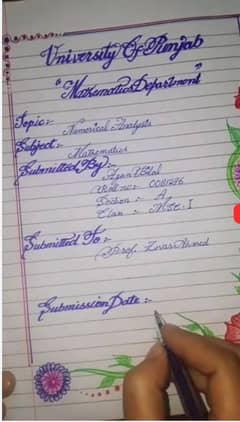 University Of Punjab
"Mathematics Department"
Topic:-
Numerical Analysis
Subject:-
Mathematics
Submitted By:-
Roll no:- 0081296
Section :- A
Class :- MSC-I
Submitted To :-
Prof. Ahmed
Submission Date :-